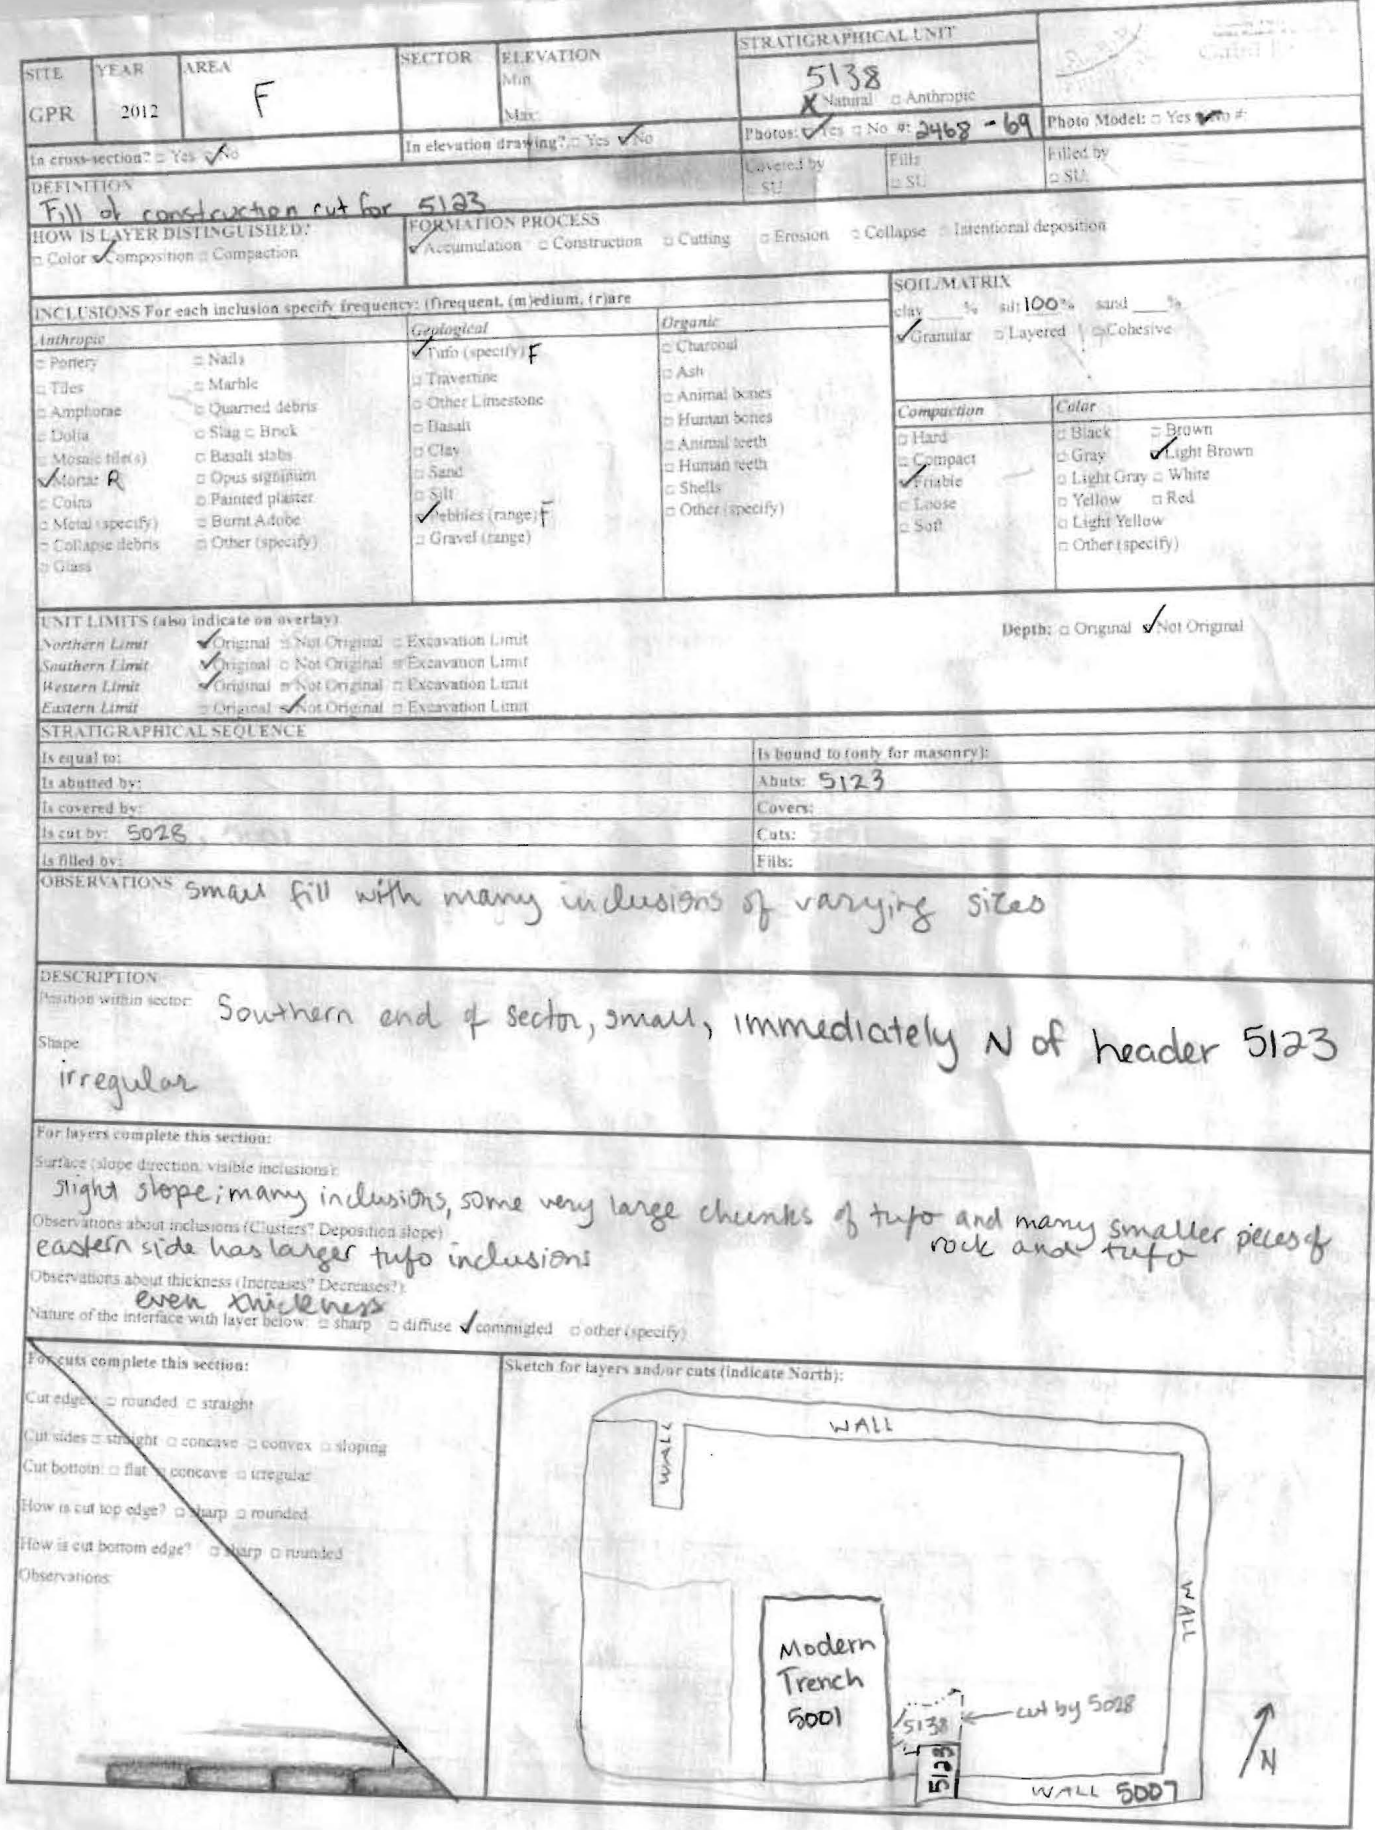 SITE YEAR AREA SECTOR ELEVATION STRATIGRAPHICAL UNIT
GPR 2012 F Min. Max: 5138
X Natural □ Anthropic
In cross-section? □ Yes ✓No In elevation drawing? □ Yes ✓No Photos: ✓Yes □ No #: 2468 - 69 Photo Model: □ Yes ✓No #:
DEFINITION Covered by Fills Filled by
Fill of construction cut for 5123 □ SU □ SU □ SU
HOW IS LAYER DISTINGUISHED? FORMATION PROCESS
□ Color ✓Composition □ Compaction ✓Accumulation □ Construction □ Cutting □ Erosion □ Collapse □ Intentional deposition
INCLUSIONS For each inclusion specify frequency: (f)requent, (m)edium, (r)are
Anthropic
□ Pottery □ Nails
□ Tiles □ Marble
□ Amphorae □ Quarried debris
□ Dolia □ Slag □ Brick
□ Mosaic tile(s) □ Basalt slabs
✓Mortar R □ Opus signinum
□ Coins □ Painted plaster
□ Metal (specify) □ Burnt Adobe
□ Collapse debris □ Other (specify)
□ Glass
Geological
✓Tufo (specify) F
□ Travertine
□ Other Limestone
□ Basalt
□ Clay
□ Sand
□ Silt
✓Pebbles (range) F
□ Gravel (range)
Organic
□ Charcoal
□ Ash
□ Animal bones
□ Human bones
□ Animal teeth
□ Human teeth
□ Shells
□ Other (specify)
SOIL/MATRIX
clay ___% silt 100% sand ___%
✓Granular □ Layered □ Cohesive
Compaction
□ Hard
□ Compact
✓Friable
□ Loose
□ Soft
Color
□ Black □ Brown
□ Gray ✓Light Brown
□ Light Gray □ White
□ Yellow □ Red
□ Light Yellow
□ Other (specify)
UNIT LIMITS (also indicate on overlay)
Northern Limit ✓Original □ Not Original □ Excavation Limit Depth: □ Original ✓Not Original
Southern Limit ✓Original □ Not Original □ Excavation Limit
Western Limit ✓Original □ Not Original □ Excavation Limit
Eastern Limit □ Original ✓Not Original □ Excavation Limit
STRATIGRAPHICAL SEQUENCE
Is equal to: Is bound to (only for masonry):
Is abutted by: Abuts: 5123
Is covered by: Covers:
Is cut by: 5028 Cuts:
Is filled by: Fills:
OBSERVATIONS small fill with many inclusions of varying sizes
DESCRIPTION
Position within sector: Southern end of sector, small, immediately N of header 5123
Shape:
irregular
For layers complete this section:
Surface (slope direction, visible inclusions):
slight slope; many inclusions, some very large chunks of tufo and many smaller pieces of
rock and tufo
Observations about inclusions (Clusters? Deposition slope)
eastern side has larger tufo inclusions
Observations about thickness (Increases? Decreases?):
even thickness
Nature of the interface with layer below: □ sharp □ diffuse ✓commingled □ other (specify)
For cuts complete this section:
Cut edge: □ rounded □ straight
Cut sides □ straight □ concave □ convex □ sloping
Cut bottom: □ flat □ concave □ irregular
How is cut top edge? □ sharp □ rounded
How is cut bottom edge? □ sharp □ rounded
Observations:
Sketch for layers and/or cuts (indicate North):
WALL
WALL
WALL
Modern
Trench
5001
5138
cut by 5028
5123
WALL 5007
N